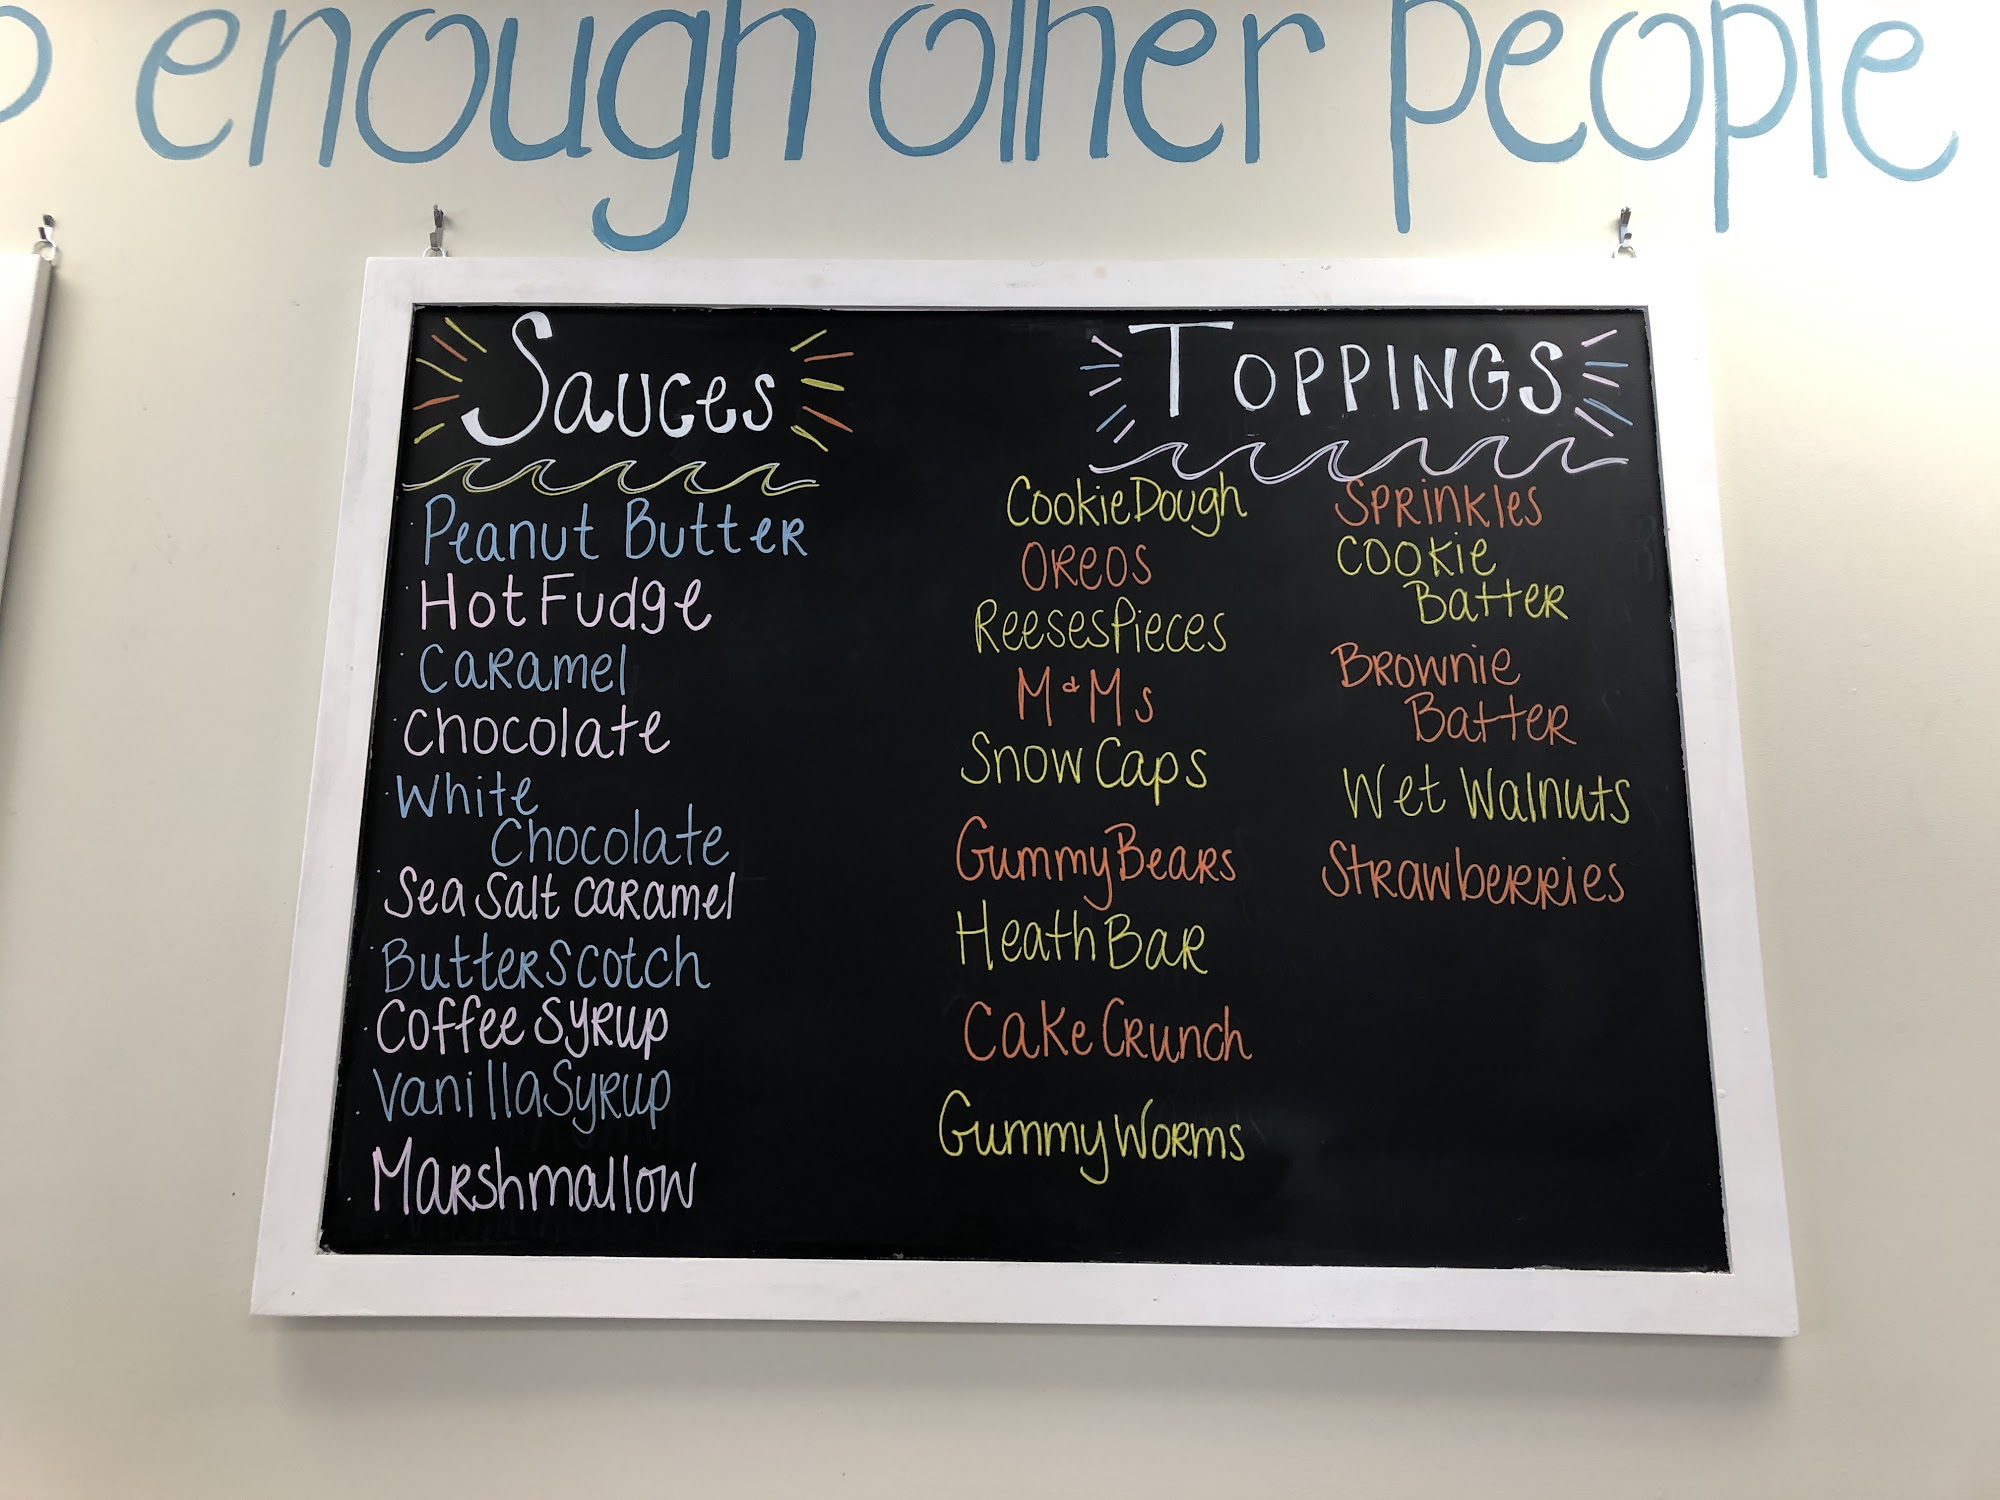 enough other people
Sauces
Peanut Butter
Hot Fudge
Caramel
Chocolate
White
Chocolate
Sea Salt Caramel
Butterscotch
Coffee Syrup
Vanilla Syrup
Marshmallow
Toppings
Cookie Dough
Oreos
Reeses Pieces
M&Ms
Snow Caps
Gummy Bears
Heath Bar
Cake Crunch
Gummy Worms
Sprinkles
Cookie
Batter
Brownie
Batter
Wet Walnuts
Strawberries